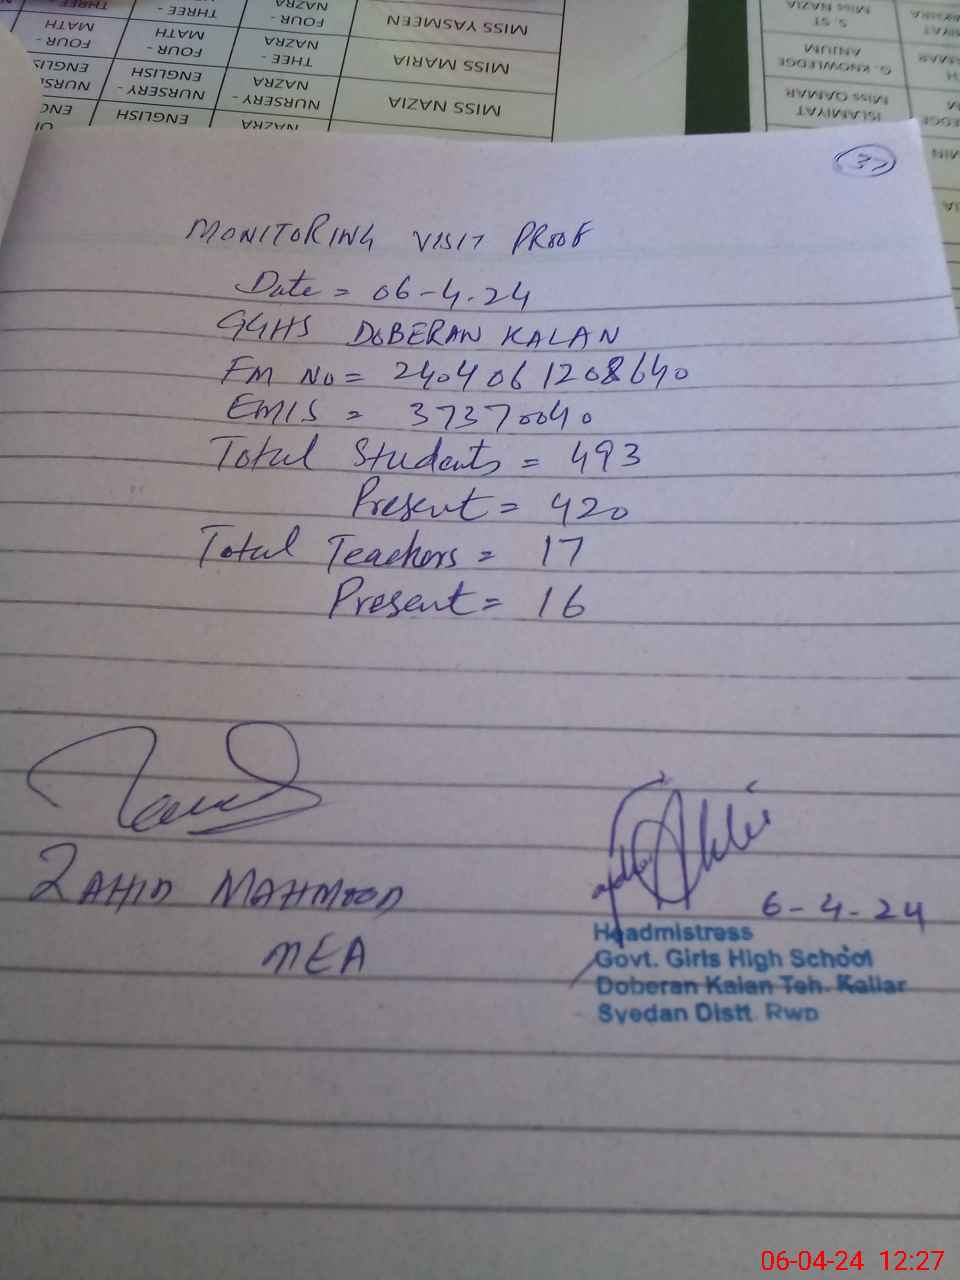 NAZRA
THREE -
THREE
MISS YASMEEN
FOUR -
MATH
MATH
NAZRA
FOUR -
FOUR -
MISS MARIA
THEE -
ENGLISH
NAZRA
NURSERY -
MISS NAZIA
NURSERY -
ENGLISH
NAZRA
MISS NAZIA
S. ST
ANJUM
G. KNOWLEDGE
MISS QAMAR
ISLAMIYAT
37
MONITORING VISIT PROOF
Date = 06-4.24
GGHS DOBERAN KALAN
FM No = 2404061208640
EMIS = 37370040
Total Students = 493
Present = 420
Total Teachers = 17
Present = 16
ZAHID MAHMOOD
MEA
6-4-24
Headmistress
Govt. Girls High School
Doberan Kalan Teh. Kallar
Syedan Distt. Rwp
06-04-24 12:27